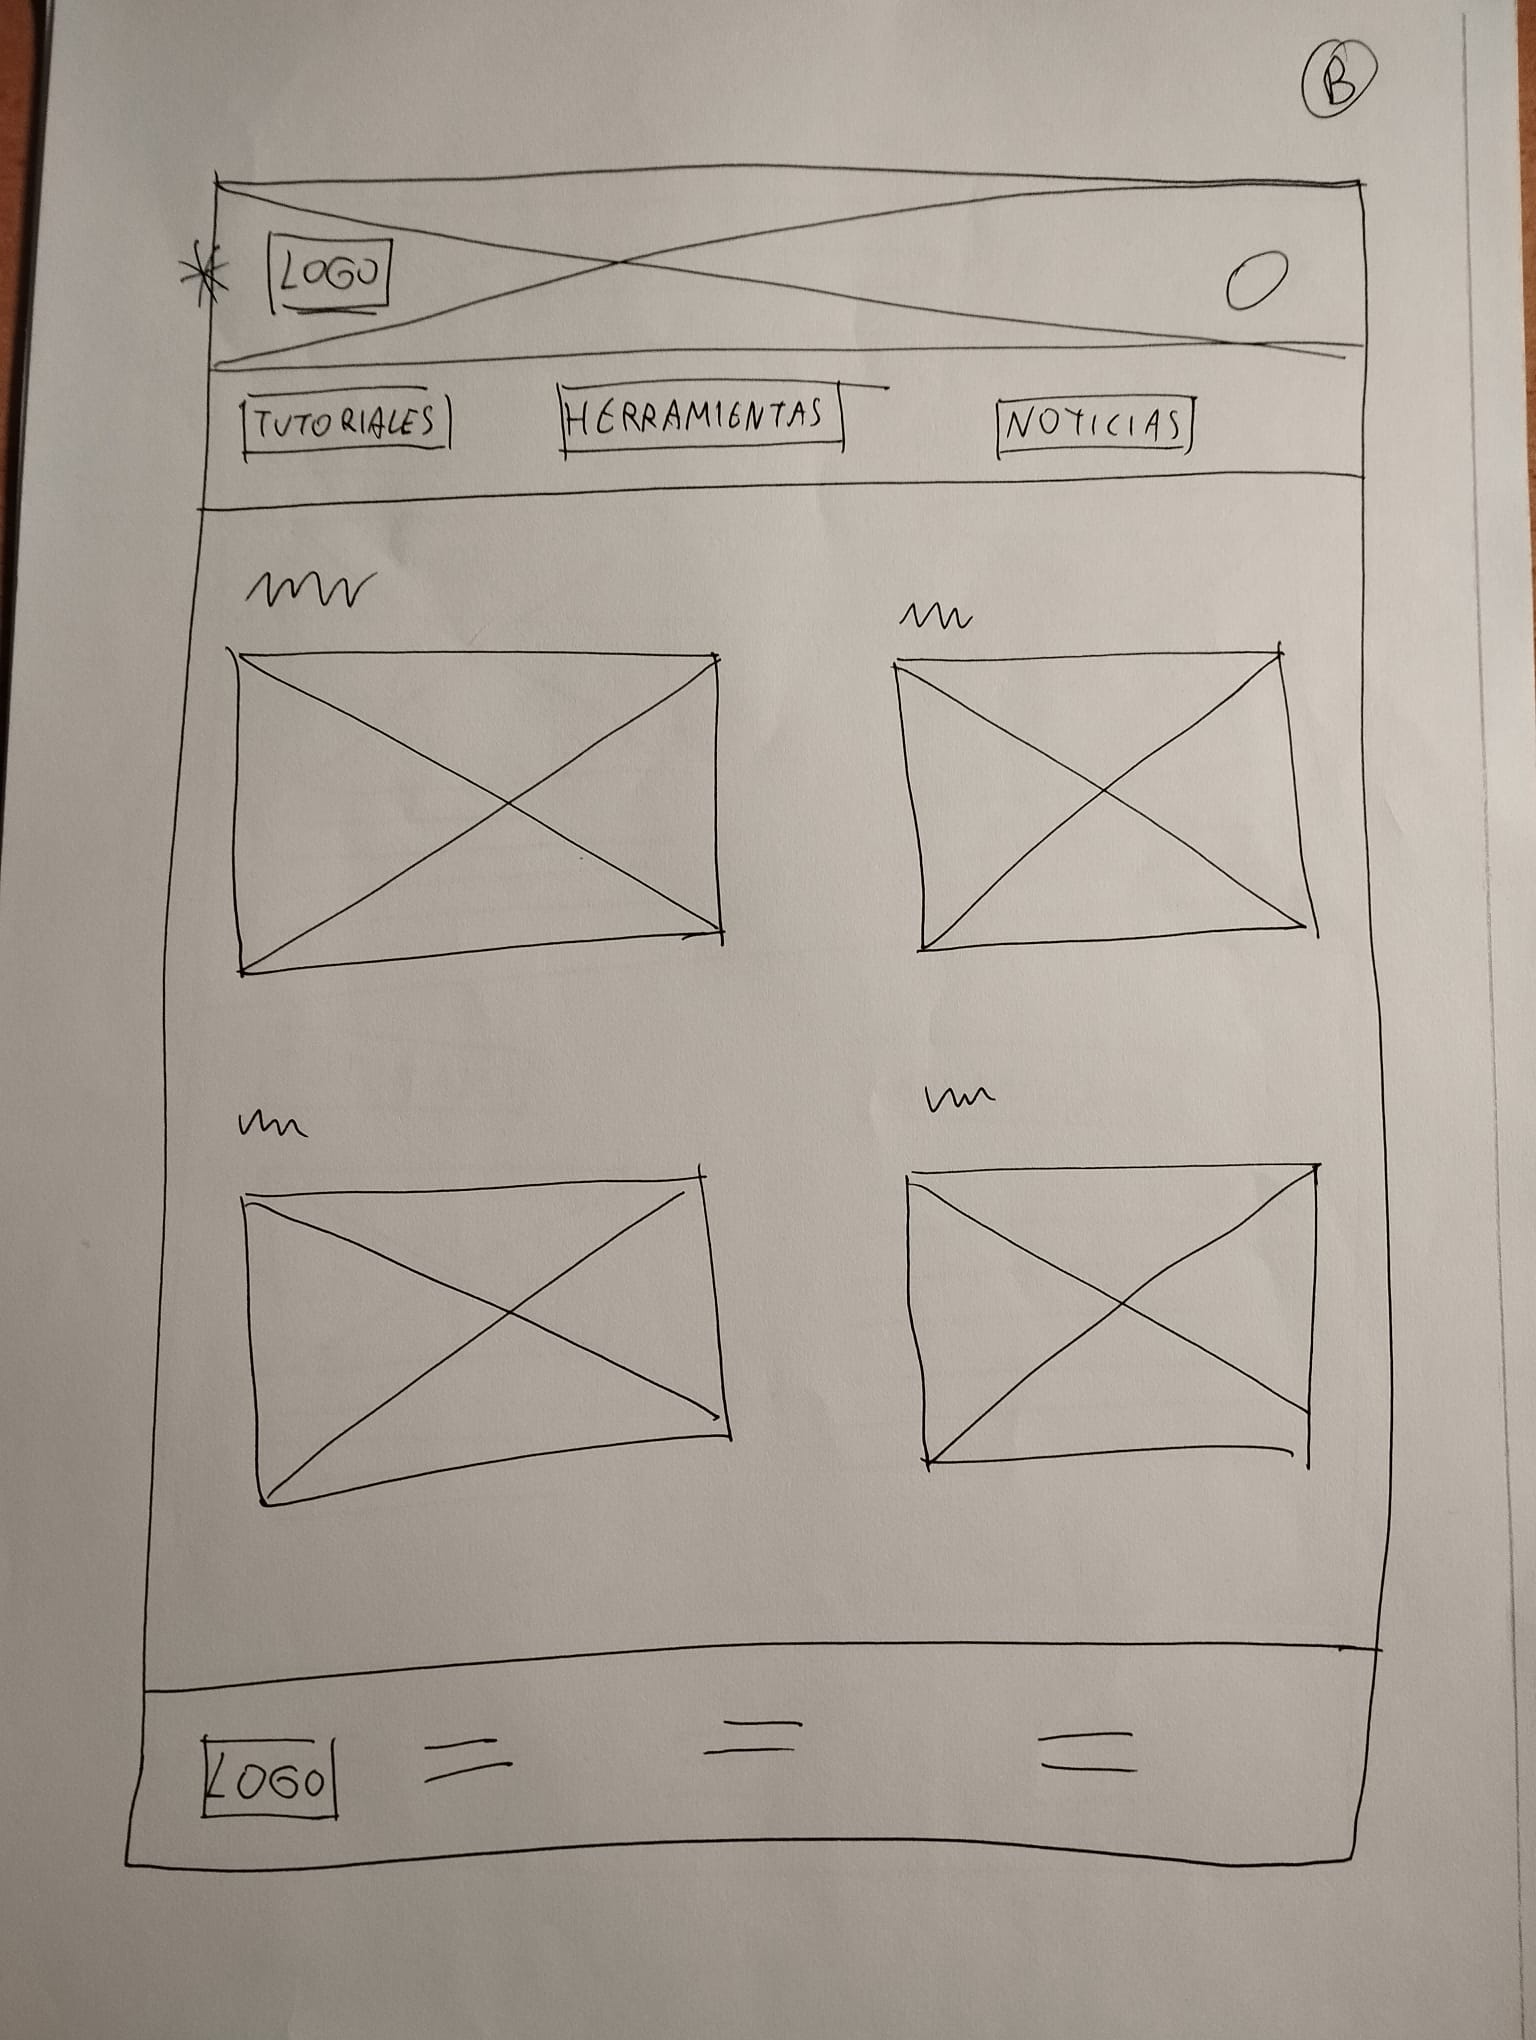 B
LOGO
TUTORIALES HERRAMIENTAS NOTICIAS
LOGO